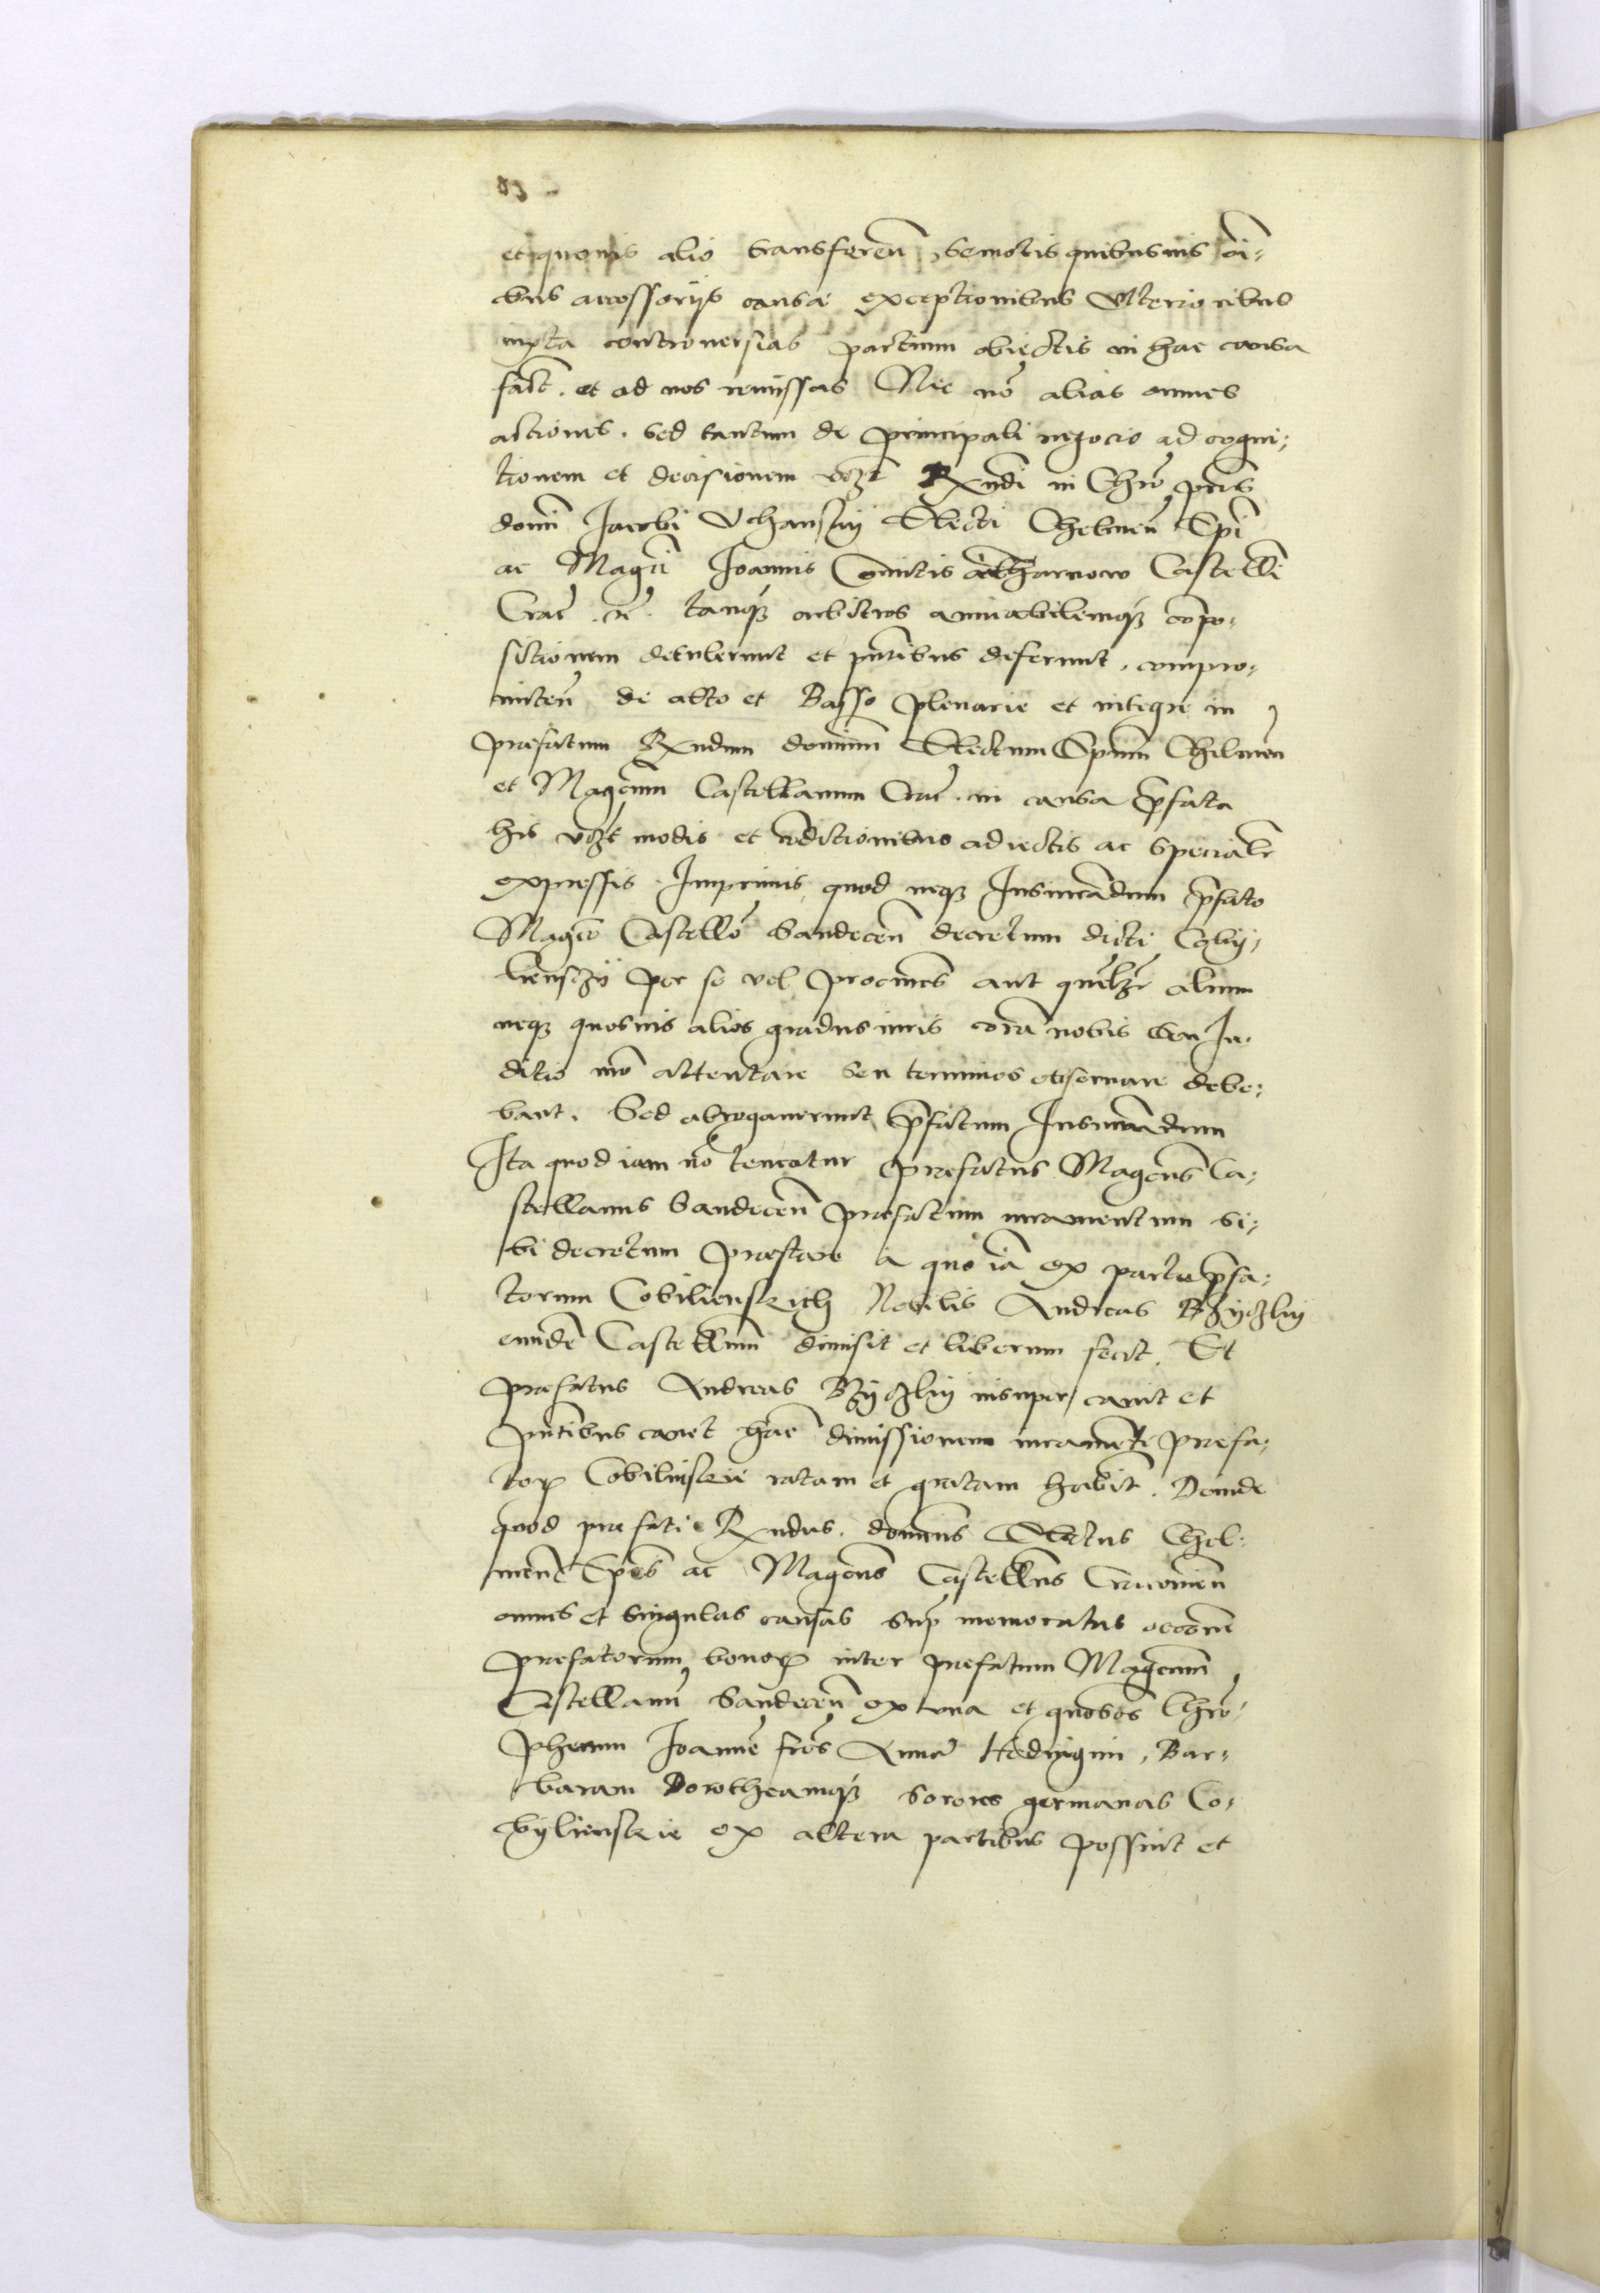 et quovis alio transferen, semotis quibusvis oi-
bus accessorijs causae exceptionibus ulterioribus
iuxta controversias partium obiectis in hac causa
fact. et ad nos remissas Nec no alias omnes
actiones. sed tantum de principali negocio ad cogni-
tionem et decisionem Rndi in Chro pris
domi Jacobi Uchansky Electi Chelmen Epi
ac Magci Joannis Comitis a Tharnow Castelli
Crac. tanq arbitros amicabilemq compo-
sitionem detulerunt et pntibus deferunt. compro-
mitten de alto et Basso plenarie et integre in
praefatum Rndum dominum Electum Epum Chelmen
et Magcum Castellanum Crac. in causa pfata
his modis et conditionibus adiectis ac specialr
expressis. Imprimis quod neq Jusiurandum pfato
Magco Castello Sandecen decretum dicti Coby-
liensczy per se vel procures aut alium
neq quosvis alios gradus iuris cora nobis seu Ju-
ditio attentare seu terminos observare debe-
bant. Sed abrogaverunt pfatum Jusiurandum
Ita quod iam no teneatur praefatus Magcus Ca-
stellanus Sandecen praefatum iuramentum si-
bi decretum praestare a quo ia ex parte pfa-
torum Cobilienskich Nobilis Andreas
eunde Castellum dimisit et liberum fecit. Et
praefatus Andreas insuper cavit et
pntibus cavet hac dimissionem iuramenti praefa-
tor Cobilinskie ratam et gratam habit. Deinde
quod praefati Rndus. dominus Electus Chel-
men Epus ac Magcus Castellus Cracovien
omnes et singulas causas sup memoratas
praefatorum bonor inter praefatum Magcum
Castellanu Sandecen ex una et gnosos Chro-
pherum Joanne fres Anna Hedvigim, Bar-
baram Dorotheamq sorores germanas Co-
bylienskie ex altera partibus possint et